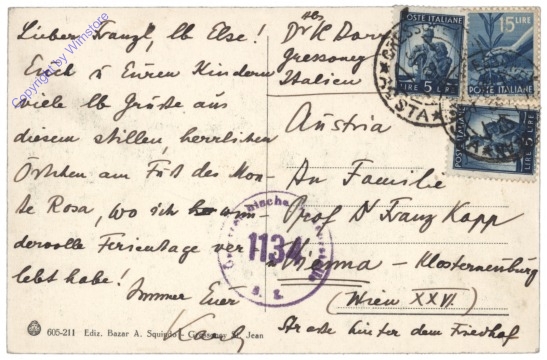 Lieber Franzl, lb Else!
Euch u Euren Kindern
viele lb Grüsse aus
diesem stillen, herrlichen
Örtchen am Fuß des Mon-
te Rosa, wo ich wun-
dervolle Ferientage ver-
lebt habe!
Immer Euer
Karl
Abs
Dr K
Gressoney
Italien
Austria
An Familie
Prof Dr Franz Kapp
Vienna - Klosterneuburg
(Wien XXVI)
Strasse hinter dem Friedhof
POSTE ITALIANE
LIRE 5 LIRE
15 LIRE
POSTE ITALIANE
POSTE ITALIANE
LIRE 5 LIRE
AOSTA
Österreichische Zensurstelle
1134
605-211 Ediz. Bazar A. Squindo - Gressoney St. Jean
Copyright by Winstore